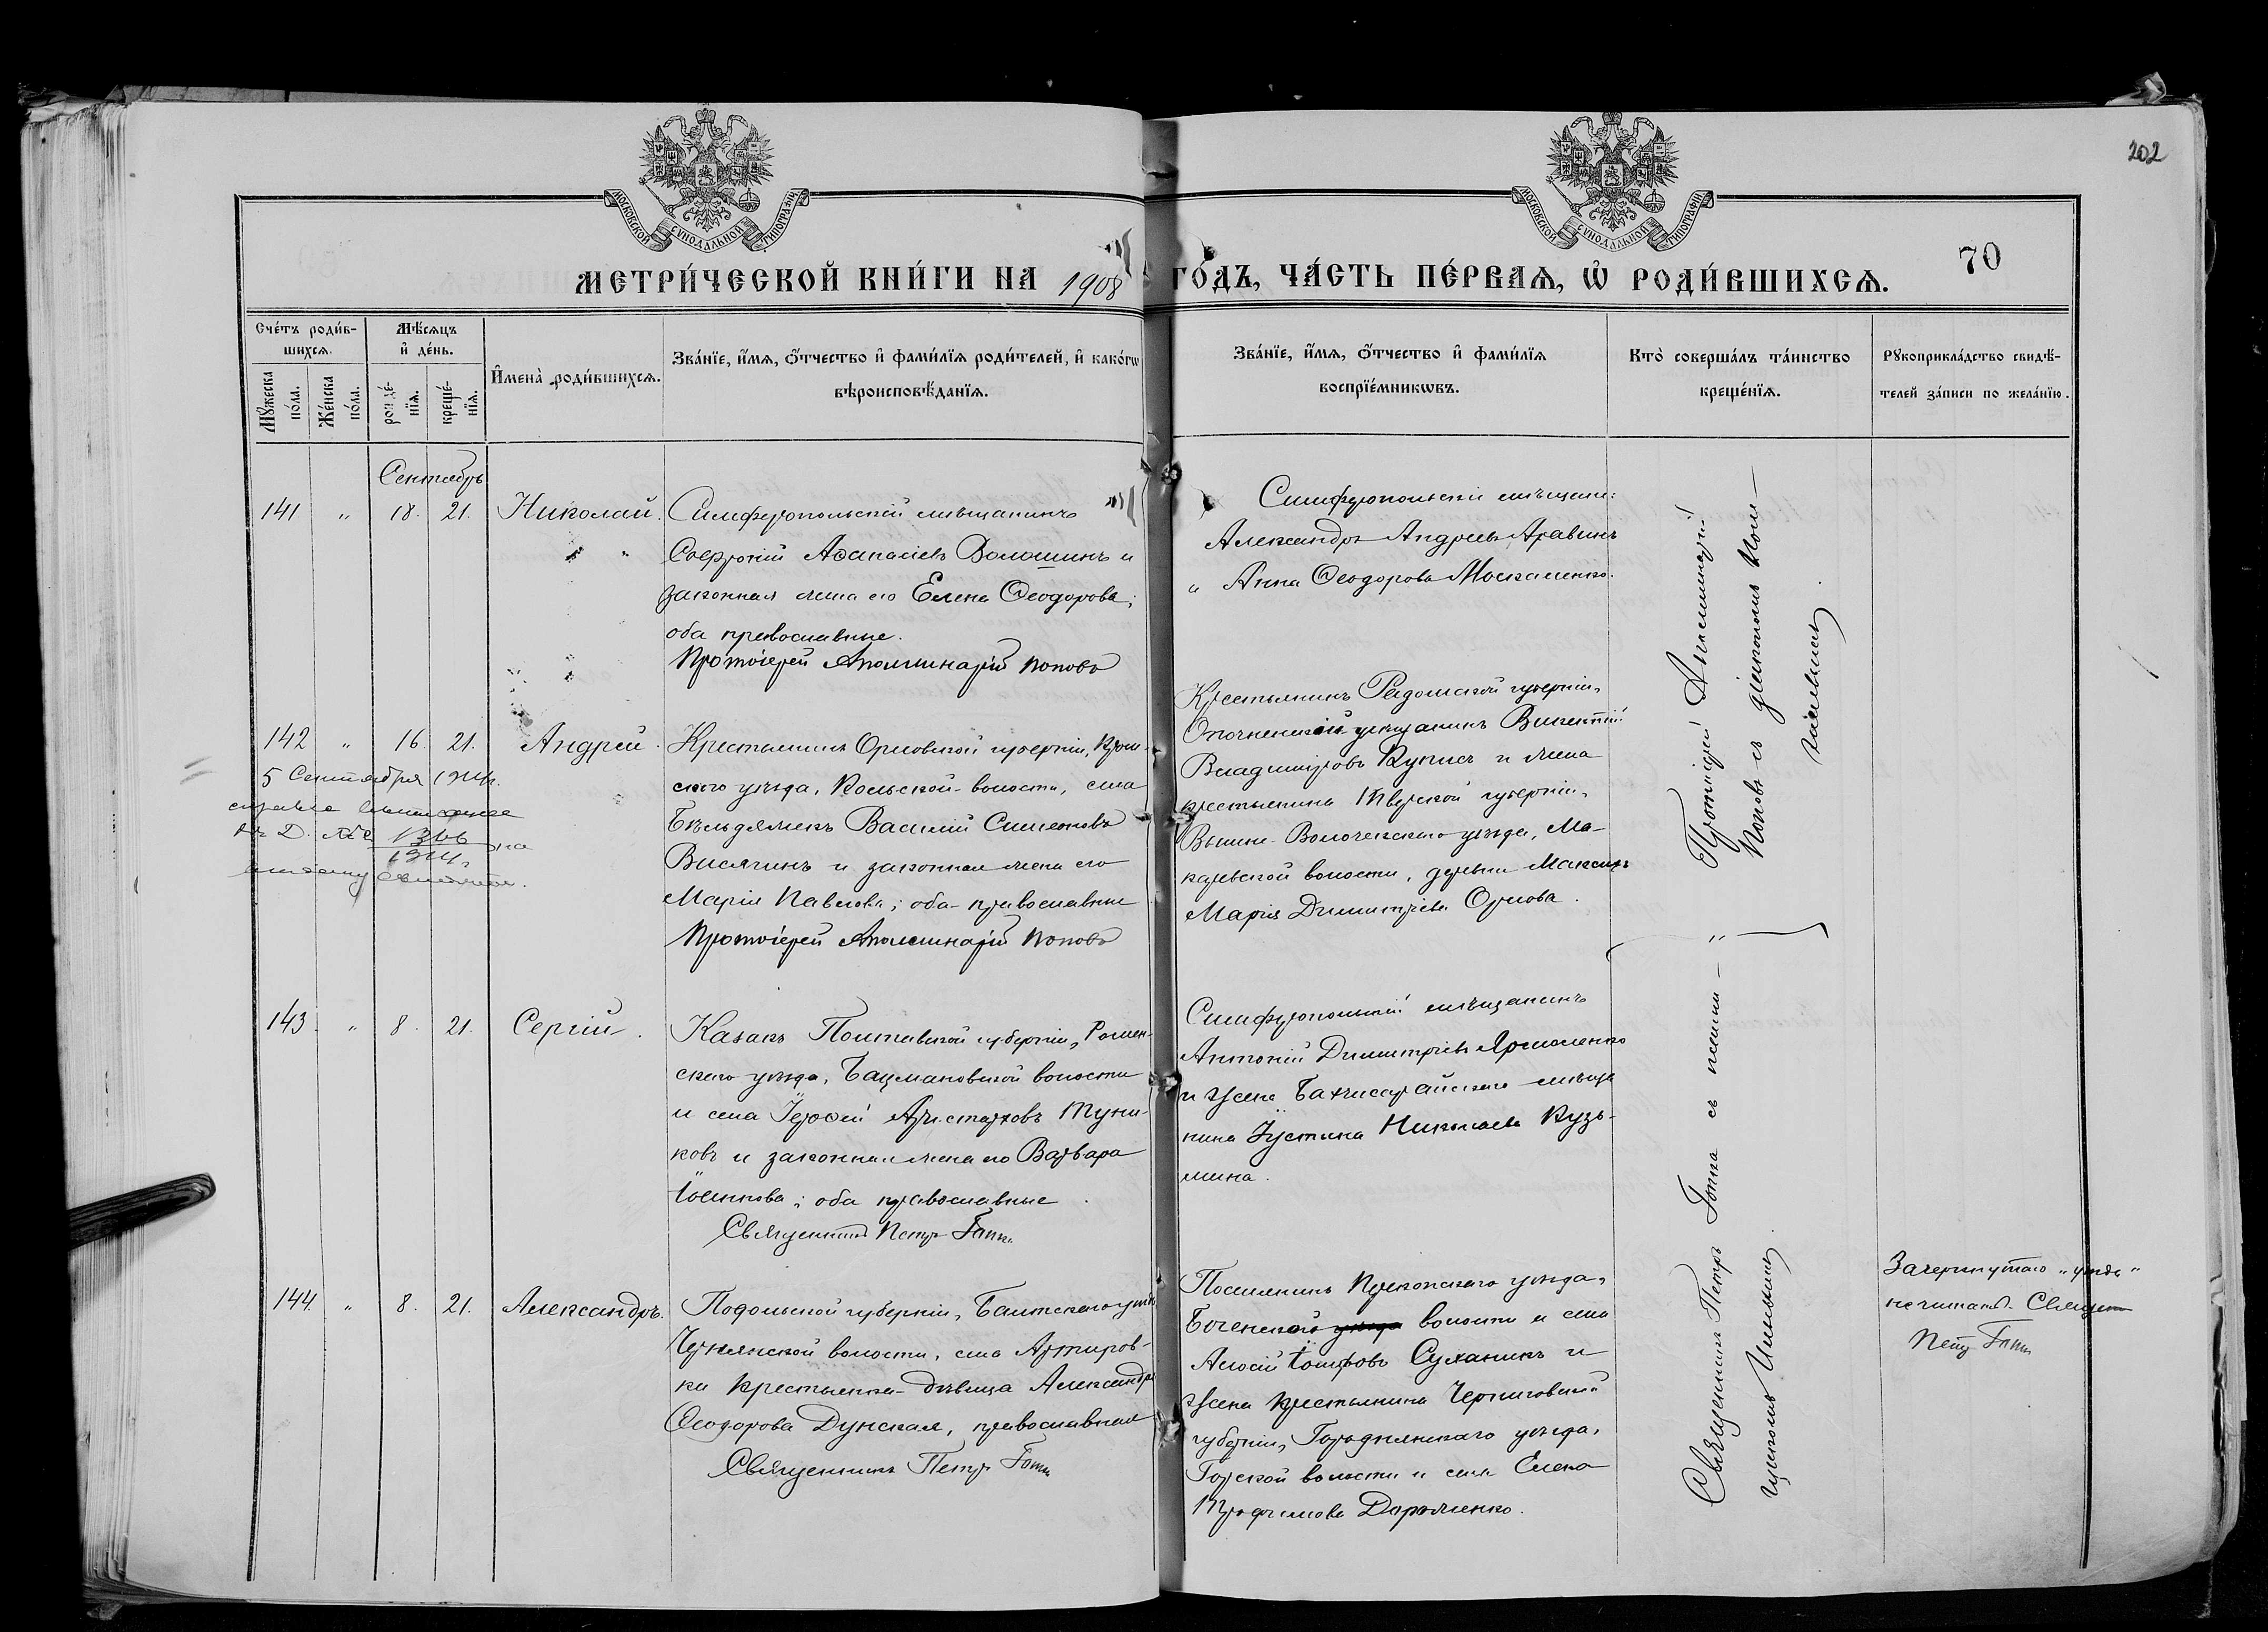 202
МОСКОВСКОЙ СѴНОДАЛЬНОЙ ТИПОГРАФІИ
МОСКОВСКОЙ СѴНОДАЛЬНОЙ ТИПОГРАФІИ
70
МЕТРИ́ЧЕСКОЙ КНИ́ГИ НА 1908 ГО́ДЪ, ЧА́СТЬ ПЕ́РВАѦ, Ѡ҆ РОДИ́ВШИХСѦ.
Сче́тъ роди́в-
шихсѧ.
Мꙋ́жеска по́ла.
Же́нска по́ла.
Мѣ́сѧцъ
и҆ де́нь.
рожде́-нїѧ.
креще́-нїѧ.
И҆мена̀ роди́вшихсѧ.
Зва́нїе, и҆́мѧ, ѻ҆́тчество и҆ фами́лїѧ роди́телей, и҆ како́гѡ
вѣроисповѣ́данїѧ.
Зва́нїе, и҆́мѧ, ѻ҆́тчество и҆ фами́лїѧ
воспрїе́мникѡвъ.
Кто̀ соверша́лъ та́инство
креще́нїѧ.
Рꙋкоприкла́дство свидѣ́-
телей за́писи по жела́нїю.
Сентябрь
141 " 18. 21. Николай.
Симферопольскій мѣщанинъ
Софроній Аѳанасіевъ Волошинъ и
законная жена его Елена Ѳеодорова;
оба православные.
Протоіерей Аполлинарій Поповъ
Симферопольскіе мѣщане:
Александръ Андреевъ Аравинъ
и Анна Ѳеодорова Москаленко.
Протоіерей Аполлинарій
Поповъ съ діакономъ
142 " 16. 21. Андрей.
5 Сентября 1914г.
1306
1914
на
Крестьянинъ Орловской губерніи, Кром-
скаго уѣзда, Кольской волости, села
Бѣльдяжекъ Василій Симеоновъ
Висягинъ и законная жена его
Марія Павлова; оба православные
Протоіерей Аполлинарій Поповъ
Крестьянинъ Радомской губерніи,
Викентій
Владиміровъ Купись и жена
крестьянина Тверской губерніи,
Вышне-Волочекскаго уѣзда, Ма-
каревской волости, деревни
Марія Димитріева Орлова.
143 " 8. 21. Сергій.
Казакъ Полтавской губерніи, Ромен-
скаго уѣзда, Бацмановской волости
и села Іероѳей Аристарховъ Туни-
ковъ и законная жена его Варвара
Іоаннова; оба православные.
Священникъ Петръ
Симферопольскій мѣщанинъ
Антоній Димитріевъ Ярмоленко
и жена Бахчисарайскаго мѣща-
нина Іустина Николаева Кузь-
мина.
Священникъ Петръ
съ псаломщикомъ
144. " 8. 21. Александръ.
Подольской губерніи, Балтскаго уѣзда
Чернянской волости, села Артиров-
ки крестьянка-дѣвица Александра
Ѳеодорова Дунская, православная
Священникъ Петръ
Поселянинъ Перекопскаго уѣзда,
волости и села
Алексій Іосифовъ Суханинъ и
жена крестьянина Черниговской
губерніи, Городнянскаго уѣзда,
Горской волости и села Елена
Трофимова
Зачеркнутаго „уѣзда"
не читать. Священ
Петр